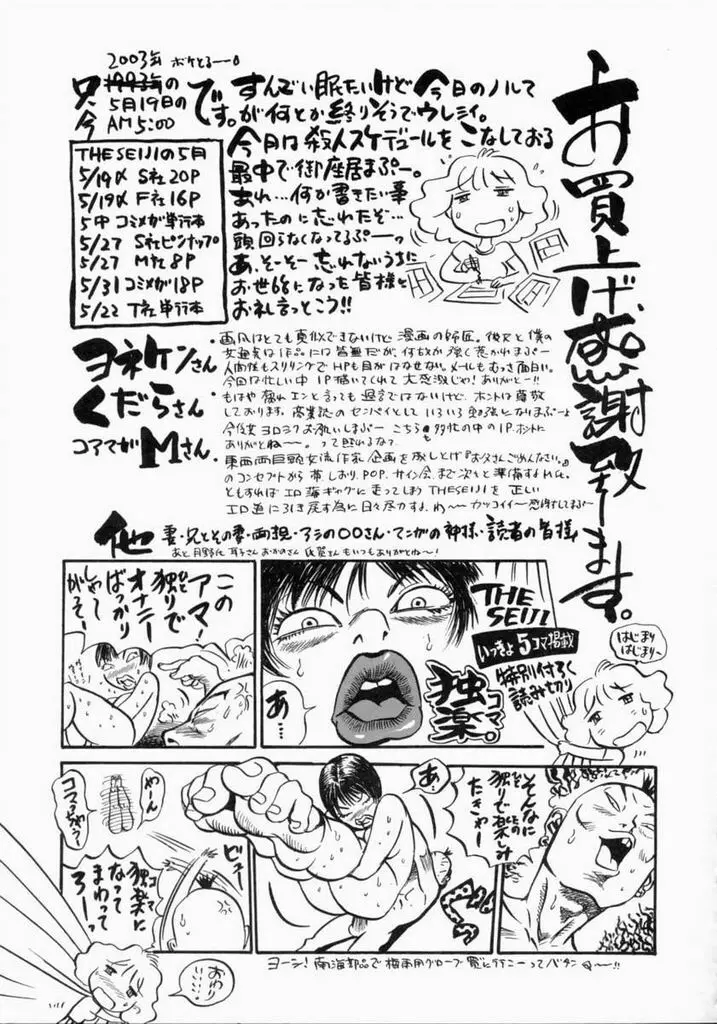 お買上げ感謝致します。
2003年 ボケとるーー。
只今
1993年の
5月19日の
AM5:00
です。
すんごい眠たいけど今日のノルマ
が何とか終りそうでウレシイ。
今月は殺人スケデュールをこなしておる
最中で御座居まぷー。
あれ…何か書きたい事
あったのに忘れたぞ…
頭回らなくなってるぷーーっ
あ、そーそー忘れないうちに
お世話になった皆様に
お礼言っとこう!!
THE SEIJIの5月
5/19〆 S社 20P
5/19〆 F社 16P
5中 コミメガ単行本
5/27 S社ピンナップ
5/27 M社 8P
5/31 コミメガ 18P
5/22 T社 単行本
ヨネケンさん
・画風はとても真似できないけど漫画の師匠。彼女と僕の
人間性もスリリングでHPも目がはなせない。メールもむっさ面白い。
今回は忙しい中1P描いてくれて大感激じゃ!ありがとー!!
くだらさん
しております。商業誌のセンパイとしていろいろ勉強になりまぷーよ
ありがとねー。って照れるなァ
コアマガMさん
・東西両巨頭女流作家企画を放しとげ『お父さんごめんなさい。』
のコンセプトから帯、しおり、POP、サイン会、まで次々と準備するMさん。
ともすればエロ落ギャグに走ってしまうTHE SEIJIを正しい
エロ道に引き戻す為に日々尽力するわ〜カッコイイ〜感謝してまるー
他
妻・兄とその妻・両担・アシの〇〇さん・マンガの神様・読者の皆様
THE SEIJI
いっきょ5コマ掲載
独楽。
コマ
特別付ろく
読み切り
はじまり
はじまり〜
あ…
このアマ!
独りで
ひと
オナニー
ばっかり
しゃ~
がって!
そんなに
独りで楽しみ
ひと
たの
たきゃー
あ…
ビシー
やん
コスっちゃう?
独楽に
コマ
なって
まわって
ろーっ
おわり
いいい!
ヨーシ!南海部品で梅雨用グローブ買いに行こーってバタン